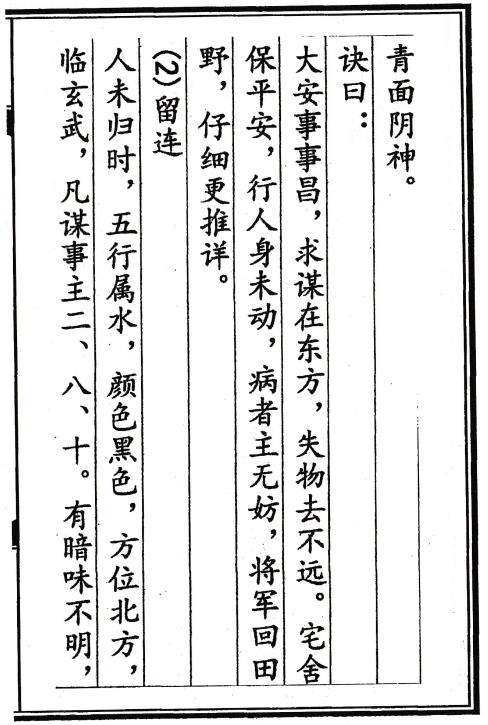 青面阴神。
诀曰：
大安事事昌，求谋在东方，失物去不远。宅舍
保平安，行人身未动，病者主无妨，将军回田
野，仔细更推详。
(2)留连
人未归时，五行属水，颜色黑色，方位北方，
临玄武，凡谋事主二、八、十。有暗味不明，